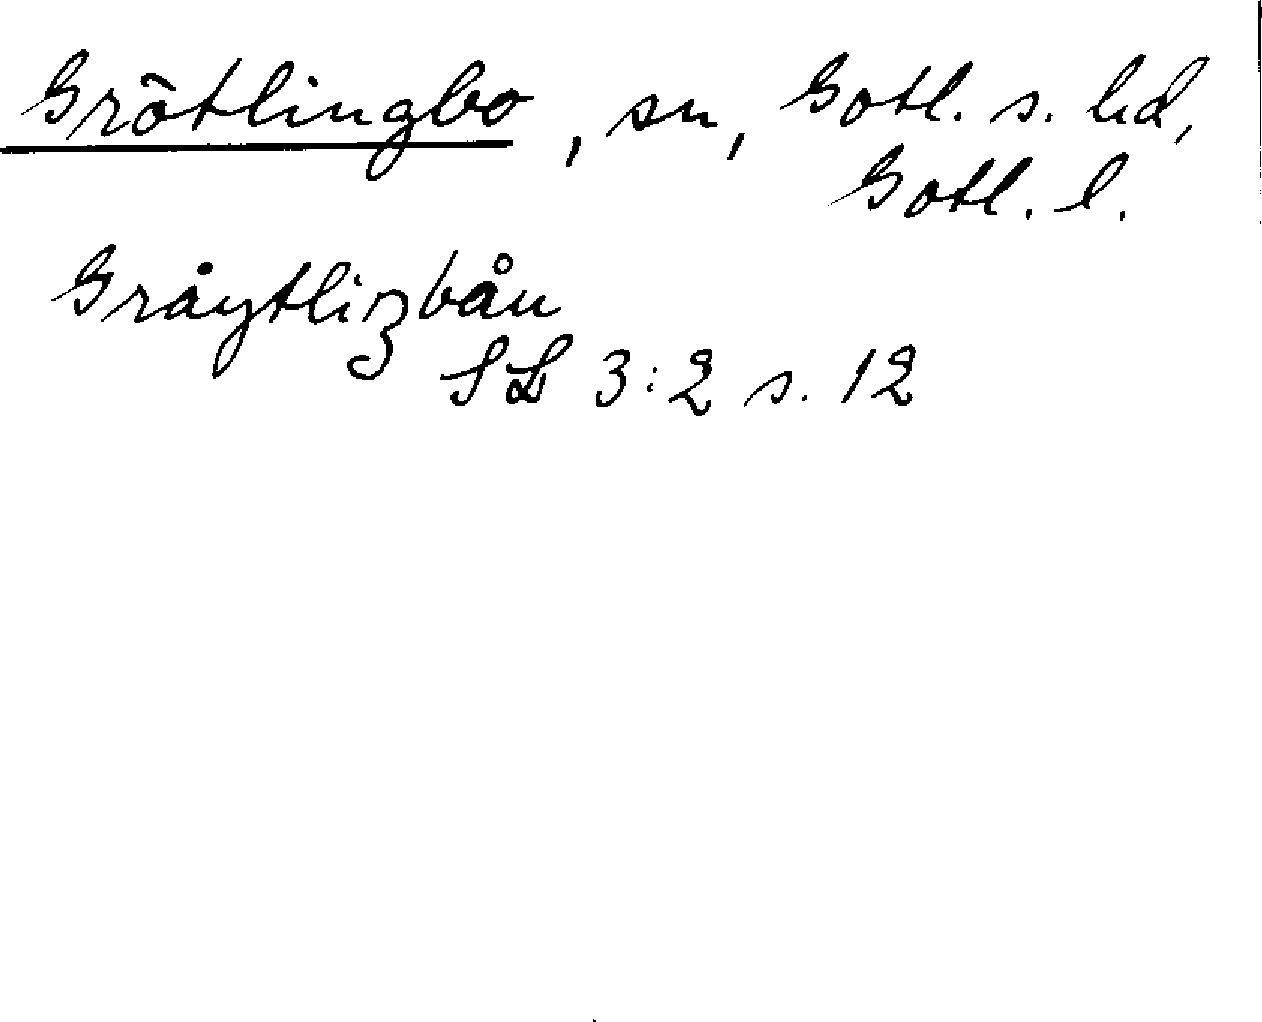 Grötlingbo, sn, Gotl. s. hd,
Gotl. l.
Gråytliŋbåu
SL 3:2 s. 12